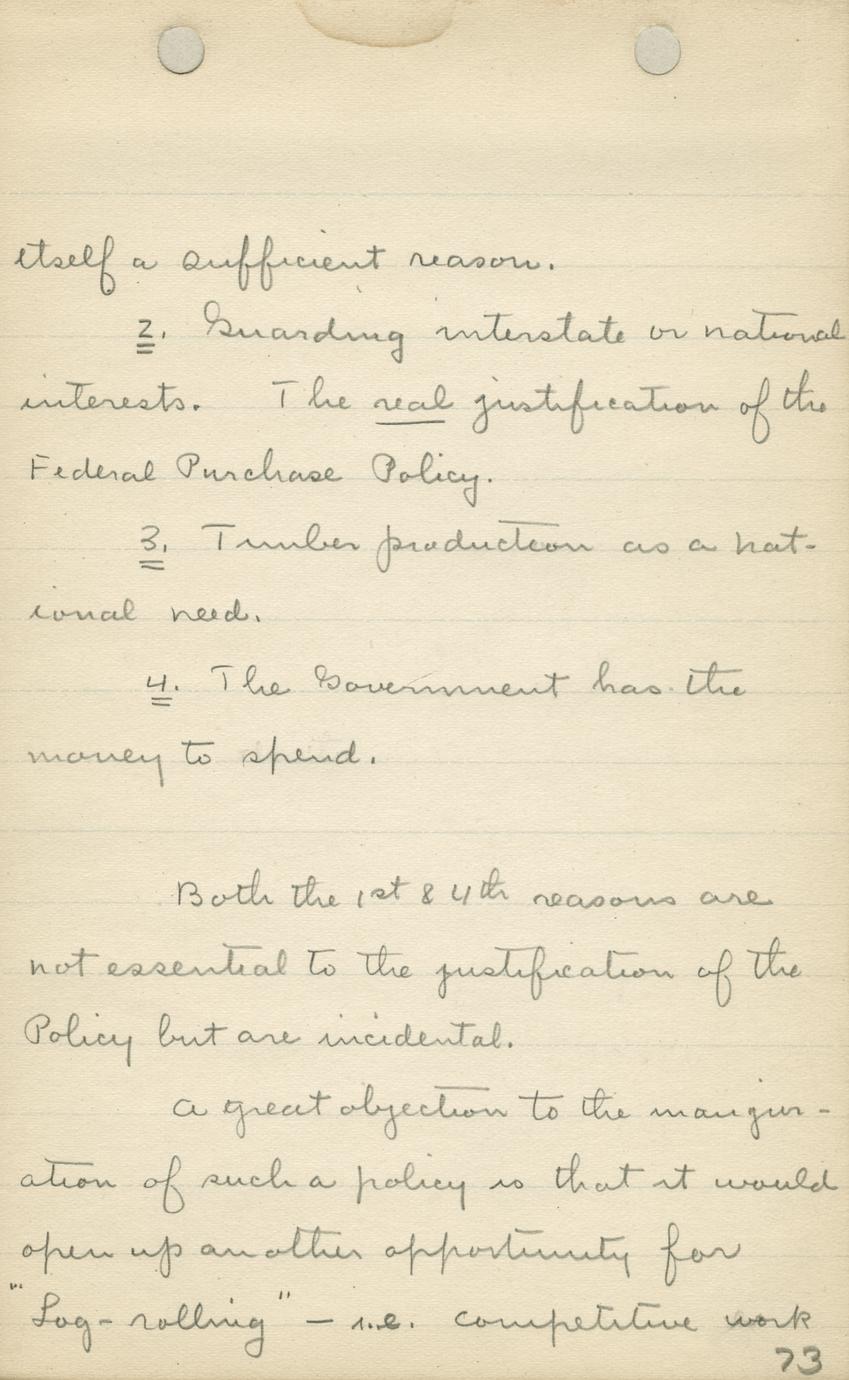 itself a sufficient reason.
2. Guarding interstate or national
interests. The real justification of the
Federal Purchase Policy.
3. Timber production as a nat-
ional need.
4. The Government has the
money to spend.
Both the 1st & 4th reasons are
not essential to the justification of the
Policy but are incidental.
A great objection to the inaugur-
ation of such a policy is that it would
open up another opportunity for
"Log-rolling" — i.e. competitive work
73